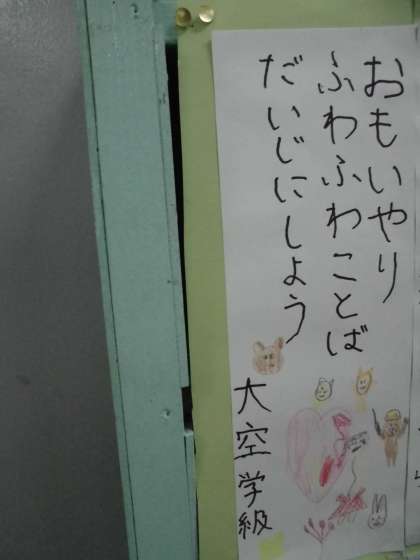 おもいやり
ふわふわことば
だいじにしよう
大空学級